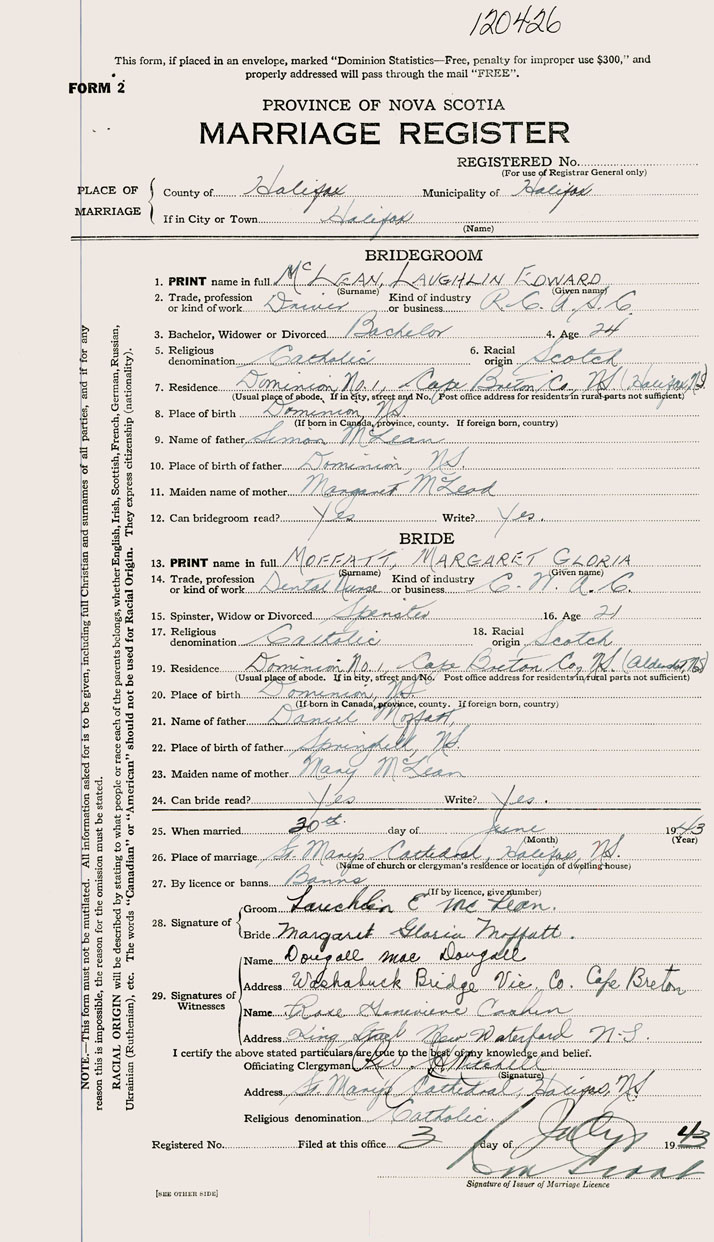 120426
This form, if placed in an envelope, marked "Dominion Statistics—Free, penalty for improper use $300," and
properly addressed will pass through the mail "FREE".
FORM 2
PROVINCE OF NOVA SCOTIA
MARRIAGE REGISTER
REGISTERED No.
(For use of Registrar General only)
PLACE OF MARRIAGE
County of Halifax Municipality of Halifax
If in City or Town Halifax
(Name)
BRIDEGROOM
1. PRINT name in full McLEAN, LAUGHLIN EDWARD
(Surname) (Given name)
2. Trade, profession or kind of work Driver Kind of industry or business R.C.A.S.C.
3. Bachelor, Widower or Divorced Bachelor 4. Age 24
5. Religious denomination Catholic 6. Racial origin Scotch
7. Residence Dominion No. 1, Cape Breton Co., NS (Halifax, NS
(Usual place of abode. If in city, street and No. Post office address for residents in rural parts not sufficient)
8. Place of birth Dominion, NS.
(If born in Canada, province, county. If foreign born, country)
9. Name of father Simon McLean
10. Place of birth of father Dominion, NS.
11. Maiden name of mother Margaret McLeod
12. Can bridegroom read? Yes Write? Yes.
BRIDE
13. PRINT name in full MOFFATT, MARGARET GLORIA
(Surname) (Given name)
14. Trade, profession or kind of work Dental Nurse Kind of industry or business C.W.A.C.
15. Spinster, Widow or Divorced Spinster 16. Age 21
17. Religious denomination Catholic 18. Racial origin Scotch
19. Residence Dominion No. 1, Cape Breton Co, NS.
(Usual place of abode. If in city, street and No. Post office address for residents in rural parts not sufficient)
20. Place of birth Dominion, NS.
(If born in Canada, province, county. If foreign born, country)
21. Name of father Daniel Moffatt,
22. Place of birth of father Springhill, NS.
23. Maiden name of mother Mary McLean
24. Can bride read? Yes Write? Yes.
25. When married 30th. day of June 1943
(Month) (Year)
26. Place of marriage St. Mary's Cathedral, Halifax, NS.
(Name of church or clergyman's residence or location of dwelling house)
27. By licence or banns Banns
(If by licence, give number)
28. Signature of
Groom Lauchlin E McLean.
Bride Margaret Gloria Moffatt.
29. Signatures of Witnesses
Name Dougall mac Dougall
Address Washabuck Bridge Vic. Co. Cape Breton
Name Rose Genevieve
Address King Street New Waterford N-S.
I certify the above stated particulars are true to the best of my knowledge and belief.
Officiating Clergyman Rev. Mitchell
(Signature)
Address St. Mary's Cathedral, Halifax, NS
Religious denomination Catholic.
Registered No. Filed at this office 3 day of July 1943
Signature of Issuer of Marriage Licence
[SEE OTHER SIDE]
NOTE.—This form must not be mutilated. All information asked for is to be given, including full Christian and surnames of all parties, and if for any
reason this is impossible, the reason for the omission must be stated.
RACIAL ORIGIN will be described by stating to what people or race each of the parents belongs, whether English, Irish, Scottish, French, German, Russian,
Ukrainian (Ruthenian), etc. The words "Canadian" or "American" should not be used for Racial Origin. They express citizenship (nationality).